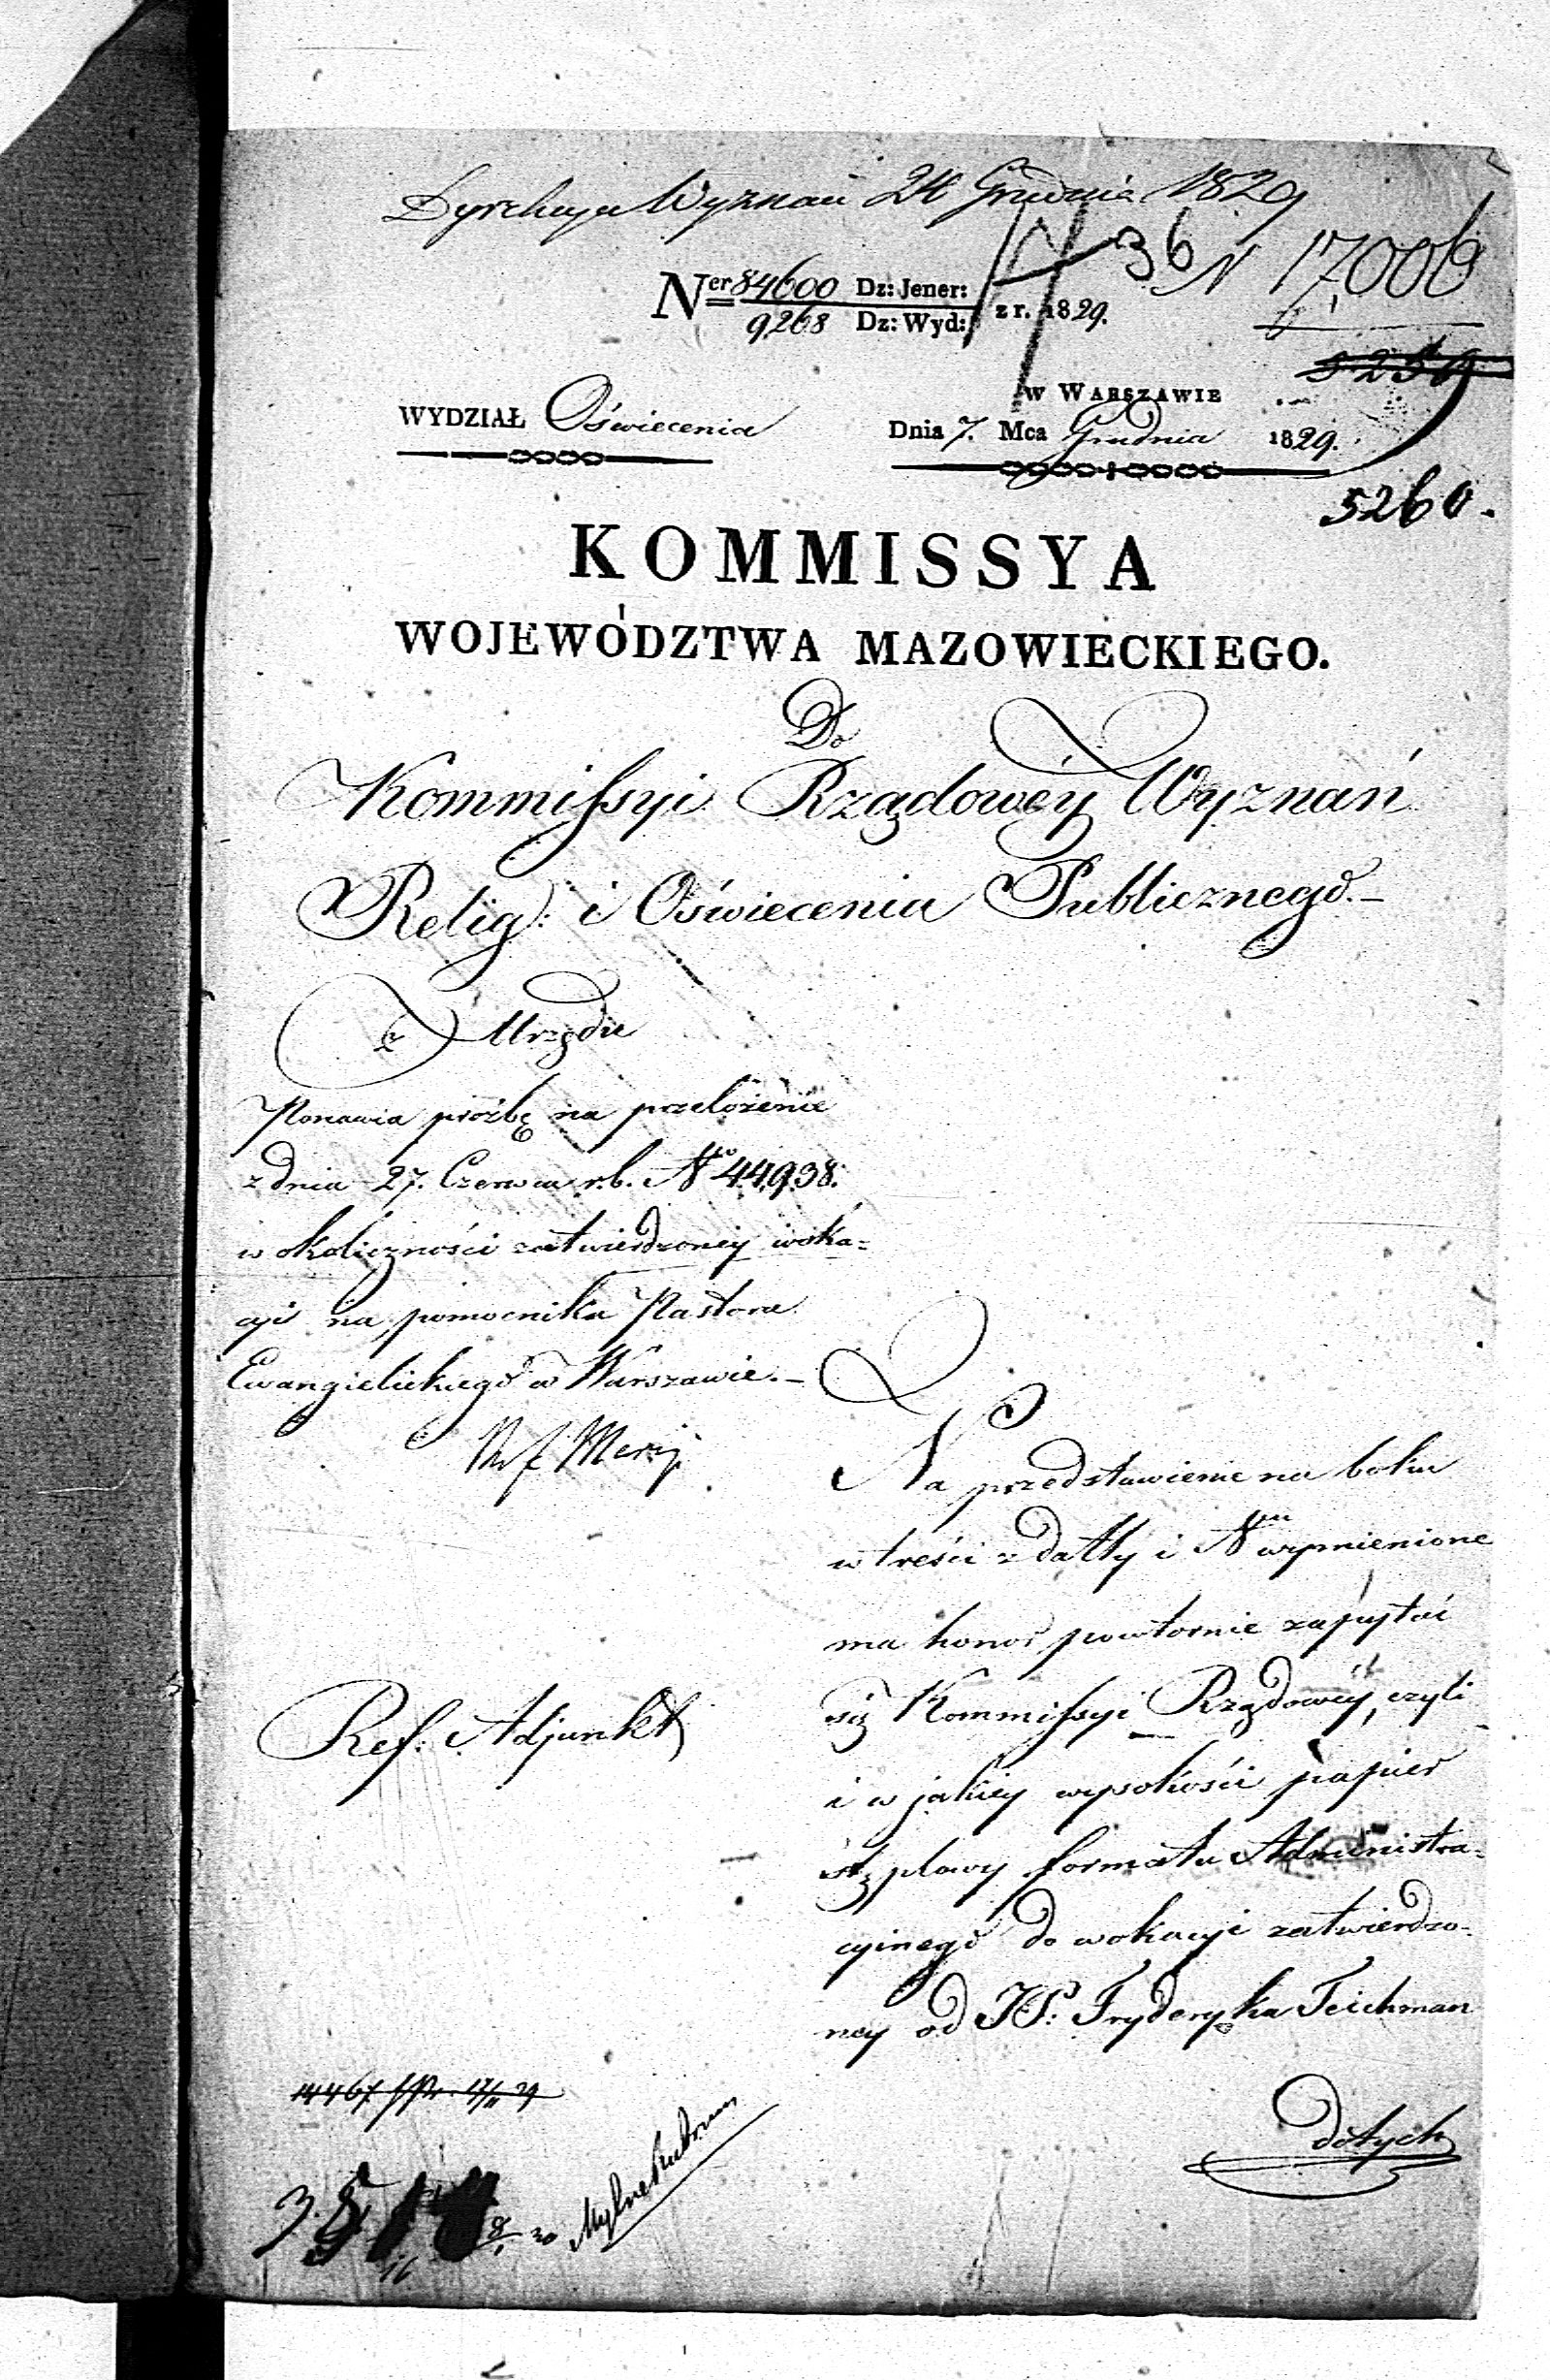 Dyrekcya Wyznań 24 Grudnia 1829
36 N 17,006
Ner 84600 Dz: Jener:
9268 Dz: Wyd: z r. 1829.
5259
w Warszawie
WYDZIAŁ Oświecenia
Dnia 7. Mca Grudnia 1829.
5260.
KOMMISSYA
WOJEWÓDZTWA MAZOWIECKIEGO.
Do
Kommissyi Rządowéy Wyznań
Relig: i Oświecenia Publicznego.-
w Urzędzie
Ponawia prożbę na przełożenie
z dnia 27. Czerwca r.b. No 44,938.
w okoliczności zatwierdzoney woka=
cyi na pomocnika Pastora
Ewangielickiego w Warszawie.-
Na przedstawienie na boku
w treści z datty i Nru wymienione
ma honor powtornie zapytać
się Kommissyi Rządowéy, czyli
i w jakiey wysokości papier
stęplowy formatu Administra=
cyinego do wokacyi zatwierdzo=
ney od JP: Fryderyka Teichman
Ref: Adjunkt
dotych